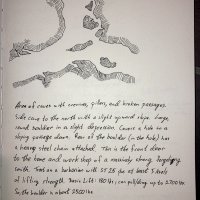 Area of caves with overview, pillars, and broken passages.
Side cave to the north with a slight upward slope. Large
round boulder in a slight depression. Covers a hole in a
sloping passage down. Rear of the boulder (in the hole) has
a heavy steel chain attached. This is the front door
to the home and work shop of a massively strong
smith. Treat as a barbarian with ST 25 for at least 5 levels
of lifting strength. Basic Lift: 180 lbs; can pull/drag up to 2700 lbs.
So, the boulder is about 2500 lbs.